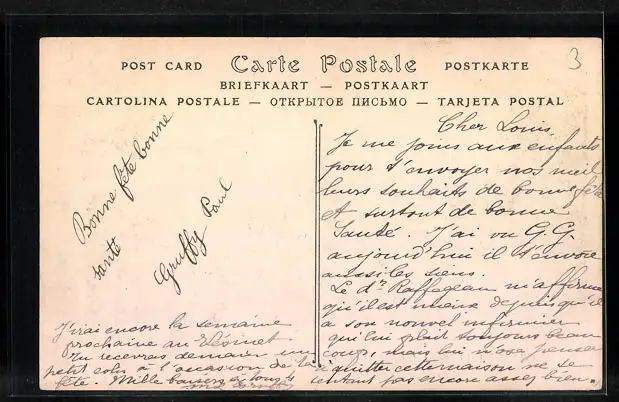 3
POST CARD Carte Postale POSTKARTE
BRIEFKAART — POSTKAART
CARTOLINA POSTALE — ОТКРЫТОЕ ПИСЬМО — TARJETA POSTAL
Bonne fête bonne
santé
Gruffy Paul
Cher Louis,
Je me joins aux enfants
pour t'envoyer nos meil
leurs souhaits de bonne fête
et surtout de bonne
santé. J'ai vu G.G.
aujourd'hui il t'envoie
aussi les siens.
Le dr Raffegeau m'affirme
qu'il est mieux depuis qu'il
a son nouvel infirmier
qui lui plait toujours beau
coup, mais lui n'ose penser
à quitter cette maison ne se
sentant pas encore assez bien.
J'irai encore la semaine
prochaine au Vésinet
Tu recevras demain un
petit colis à l'occasion de ta
fête. Mille baisers à tous